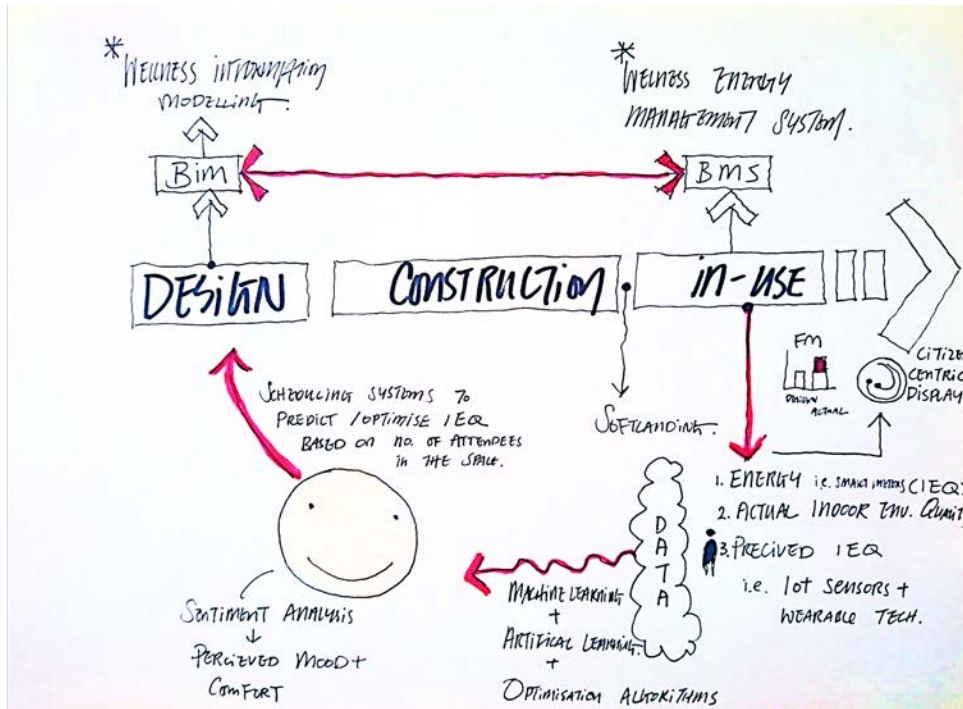 * WELLNESS INFORMATION
MODELLING.
* WELNESS ENERGY
MANAGEMENT SYSTEM.
Bim
BMS
DESIGN
CONSTRUCTION
in-USE
FM
DESIGN
ACTUAL
CITIZE
CENTRIC
DISPLAY
SCHEDULING SYSTEMS TO
PREDICT / OPTIMISE IEQ
BASED ON NO. OF ATTENDEES
in THE SPACE.
SOFTLANDING.
1. ENERGY i.e. SMART METERS (IEQ)
2. ACTUAL INDOOR ENV. QUALIT
3. PRECIVED IEQ
i.e. IoT SENSORS +
WEARABLE TECH.
DATA
MACHINE LEARNING
+
ARTIFICAL LEARNING.
+
OPTIMISATION ALGORITHMS
SENTIMENT ANALYSIS
PERCIEVED MOOD +
COMFORT